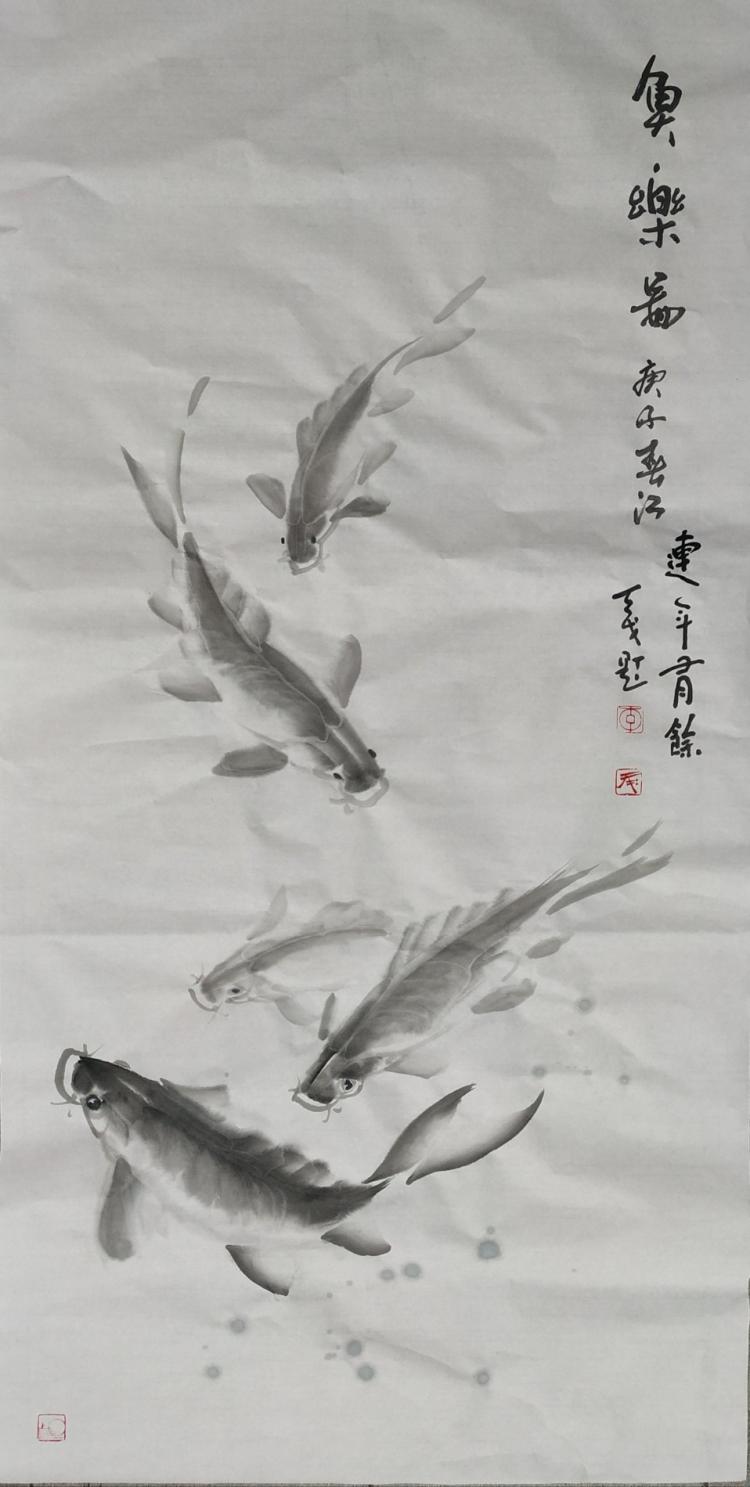 魚樂圖
庚子春江
連年有餘
題